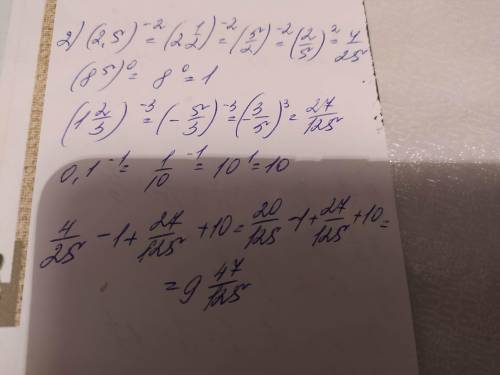 2) (2,5)⁻² = (2 1/2)⁻² = (5/2)⁻² = (2/5)² = 4/25
(8⁵)⁰ = 8⁰ = 1
(1 2/3)⁻³ = (-5/3)⁻³ = (-3/5)³ = 27/125
0,1⁻¹ = 1/10⁻¹ = 10¹ = 10
4/25 - 1 + 27/125 + 10 = 20/125 - 1 + 27/125 + 10 =
= 9 47/125